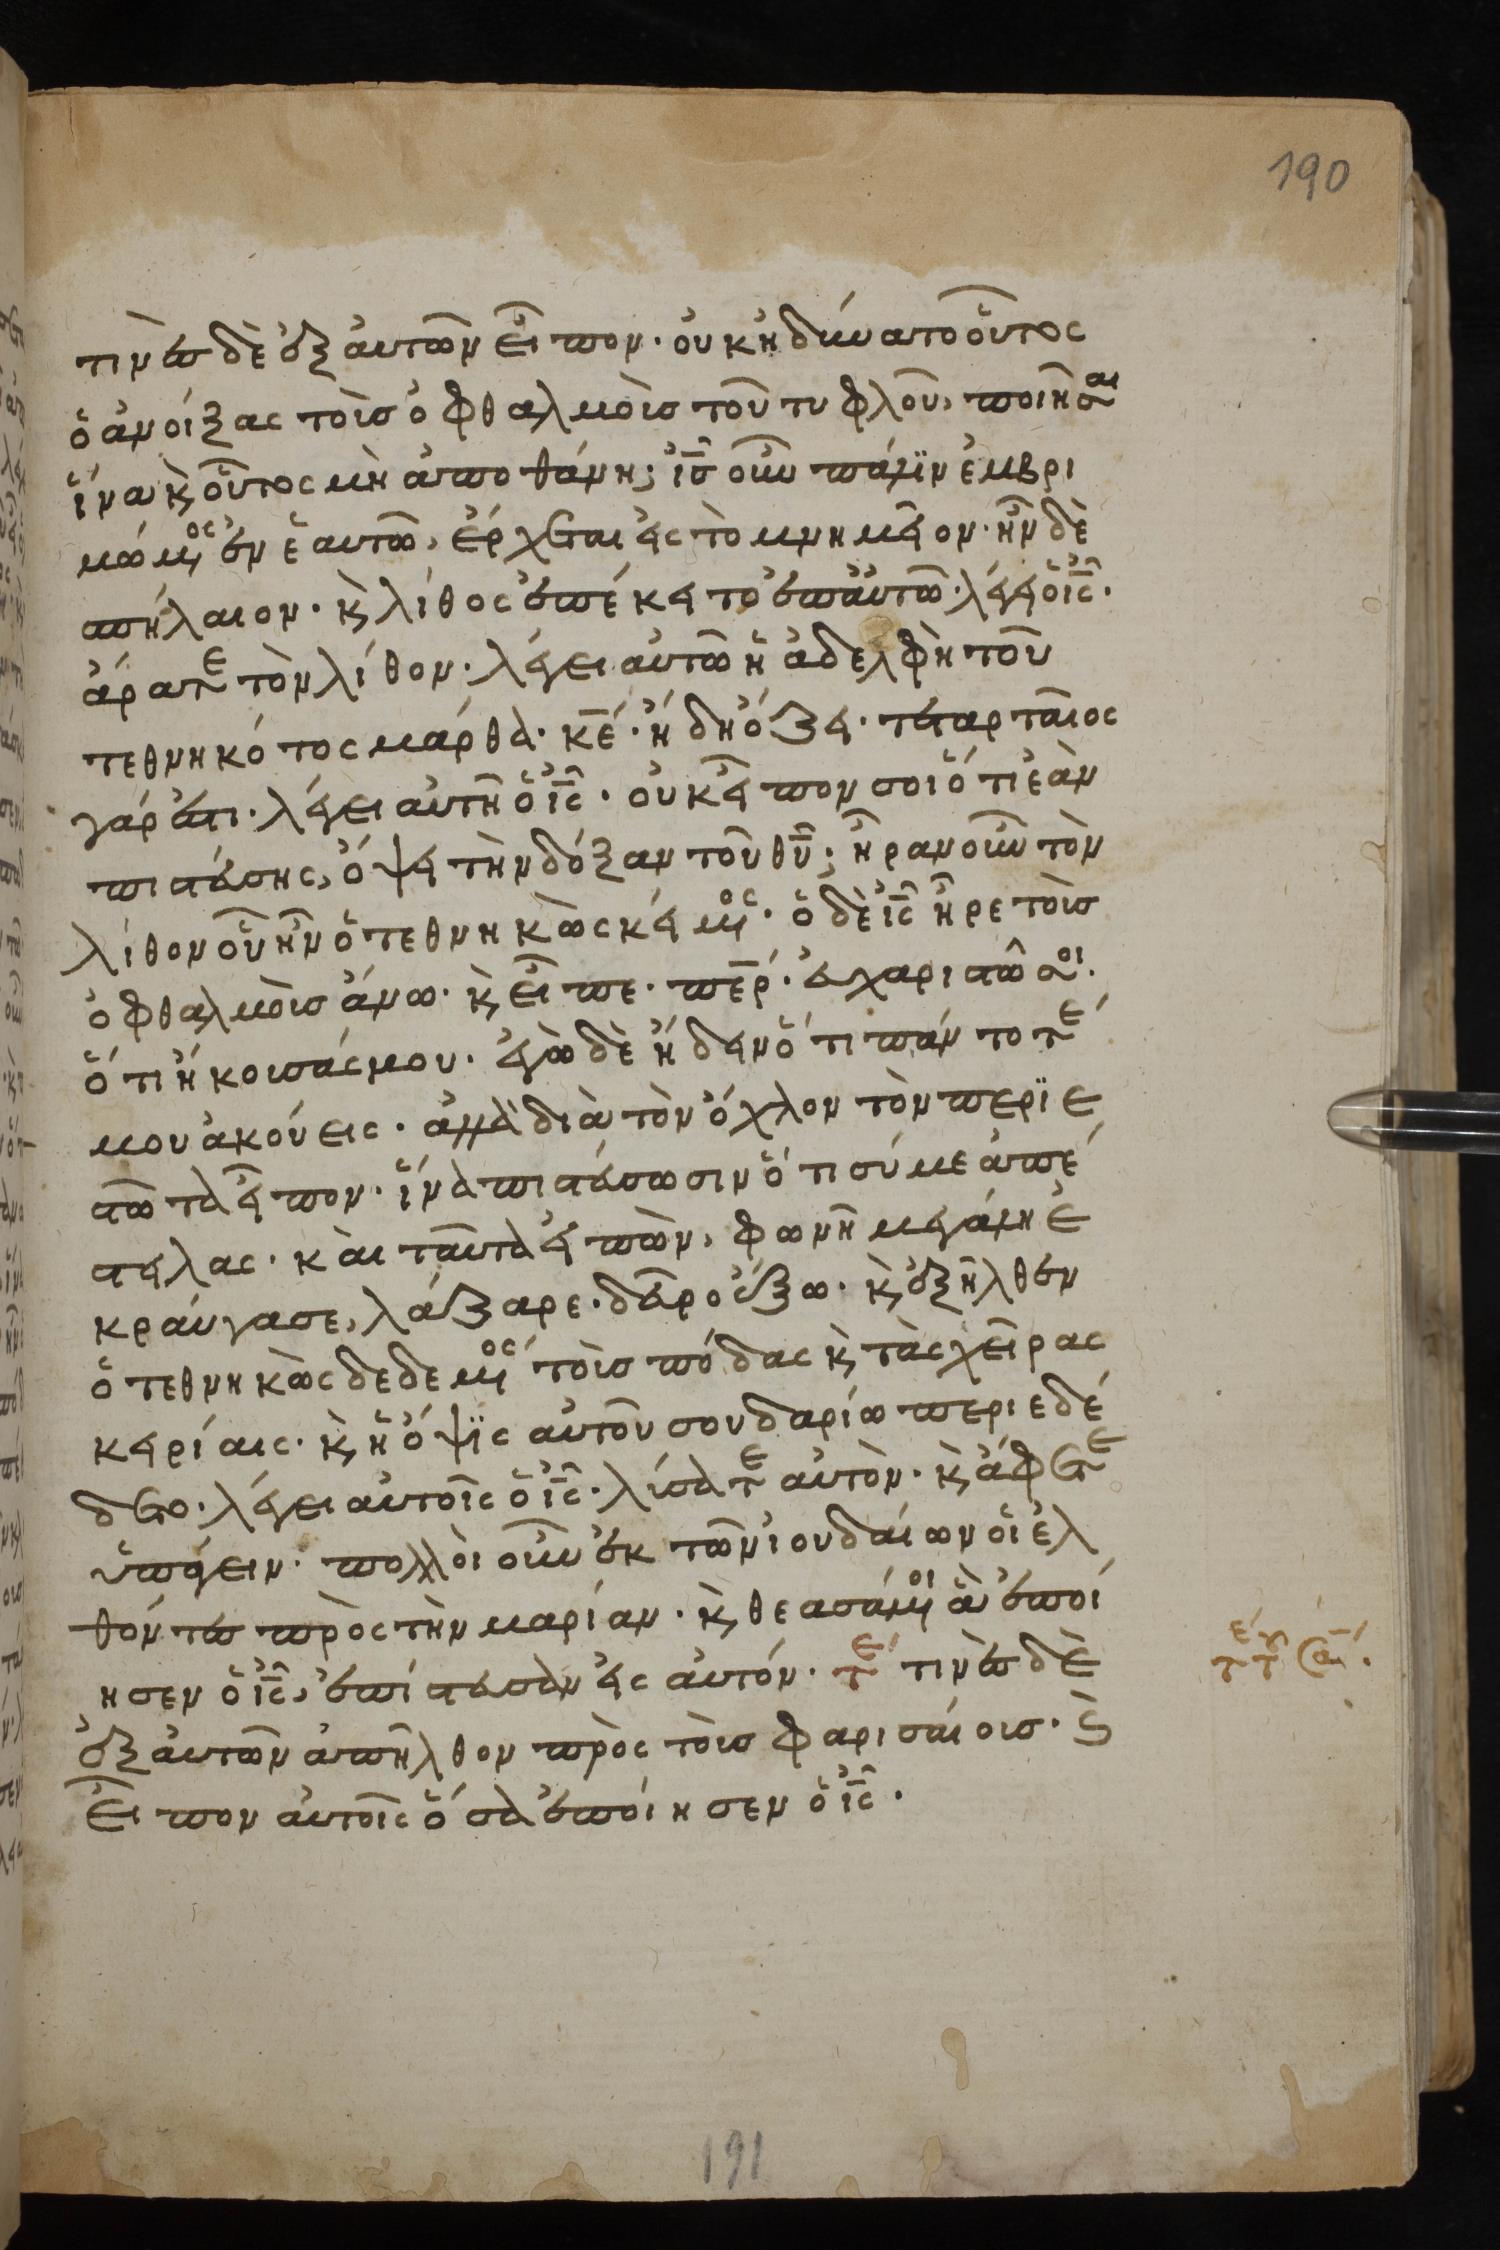 190
τινὲς δὲ ἐξ αὐτῶν εἶπον· οὐκ ἠδύνατο οὗτος
ὁ ἀνοίξας τοὺς ὀφθαλμοὺς τοῦ τυφλοῦ, ποιῆσαι
ἵνα κ οὗτος μὴ ἀποθάνη; ις οὖν πάλϊν ἐμβρι
μώμενος ἐν ἑαυτῶ, ἔρχεται εἰς τὸ μνημεῖον· ἦν δὲ
σπήλαιον· κ λίθος ἐπέκειτο ἐπ' αὐτῶ· λέγει ὁ ις·
ἄρατε τὸν λίθον· λέγει αὐτῶ ἡ ἀδελφὴ τοῦ
τεθνηκότος μάρθα· κε· ἤδη ὄζει· τεταρταῖος
γάρ ἐστι· λέγει αὐτῆ ὁ ις· οὐκ εἶπον σοι ὅτι ἐὰν
πιστεύσης, ὄψει τὴν δόξαν τοῦ θυ; ἦραν οὖν τὸν
λίθον οὗ ἦν ὁ τεθνηκὼς κείμενος· ὁ δὲ ις ἦρε τοὺς
ὀφθαλμοὺς ἄνω· κ εἶπε· περ· εὐχαριστῶ σοι·
ὅτι ἤκουσάς μου· ἐγὼ δὲ ἤδειν ὅτι πάντοτέ
μου ἀκούεις· ἀλλὰ διὰ τὸν ὄχλον τὸν περϊε
στῶτα εἶπον· ἵνα πιστεύσωσιν ὅτι σύ με ἀπέ
στειλας· καὶ ταῦτα εἰπὼν, φωνῆ μεγάλη ἐ
κραύγασε, λάζαρε· δεῦρο ἔξω· κ ἐξῆλθεν
ὁ τεθνηκὼς δεδεμένος τοὺς πόδας κ τὰς χεῖρας
κειρίαις· κ ἡ ὄψϊς αὐτοῦ σουδαρίω περιεδέ
δετο· λέγει αὐτοῖς ὁ ις· λύσατε αὐτὸν· κ ἄφετε
ὑπάγειν· πολλοὶ οὖν ἐκ τῶν ἰουδαίων οἱ ἐλ
θόντες πρὸς τὴν μαρίαν· κ θεασάμενοι ἃ ἐποί
ησεν ὁ ις, ἐπίστευσαν εἰς αὐτόν· τε τινὲς δὲ
ἐξ αὐτῶν ἀπῆλθον πρὸς τοὺς φαρισαίους· κ
εἶπον αὐτοῖς ὅσα ἐποίησεν ὁ ις·
191